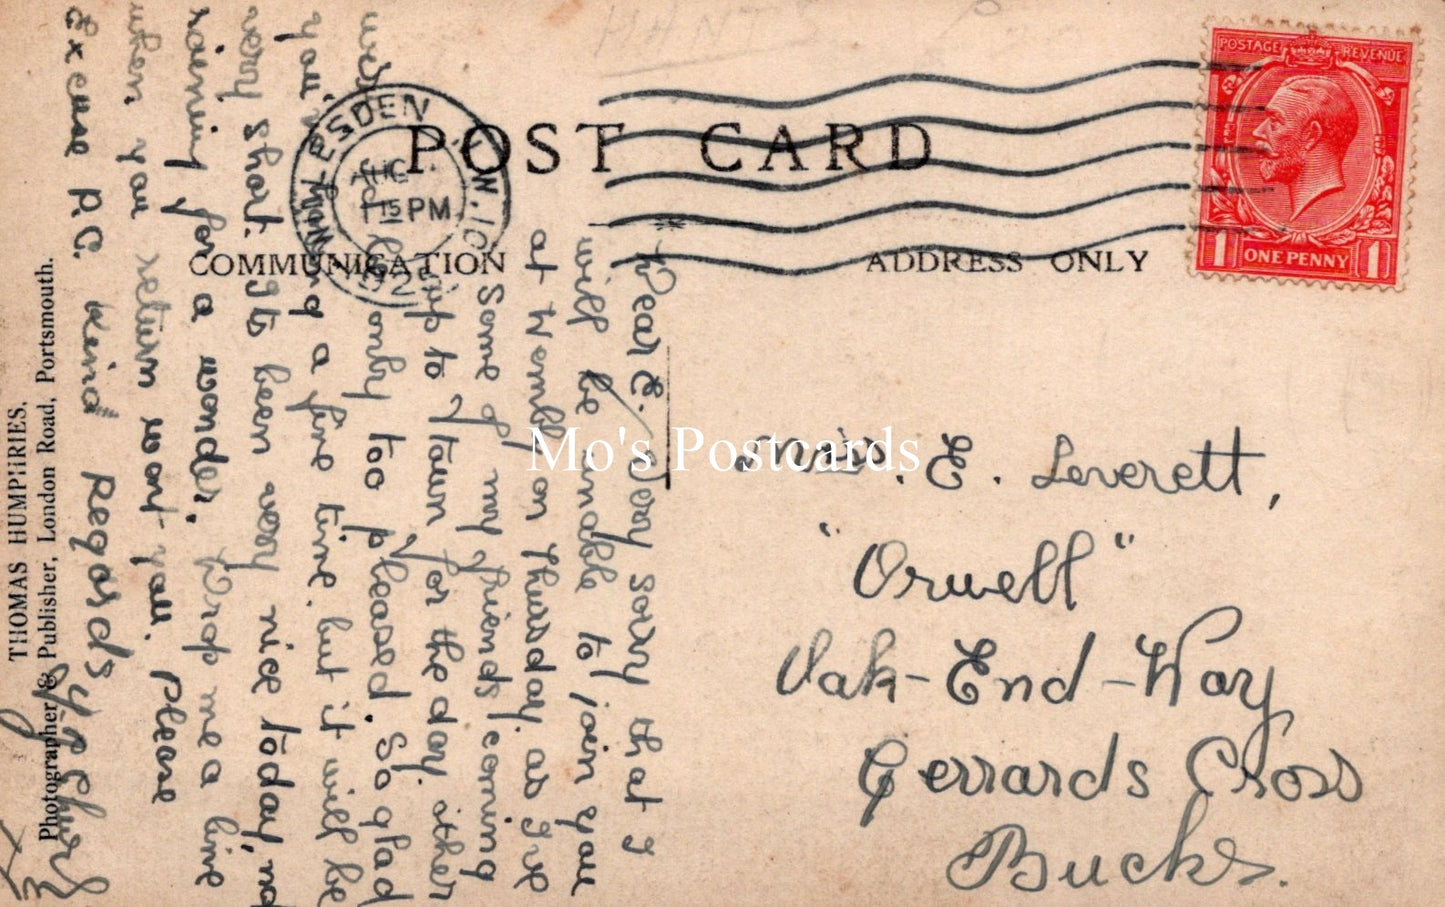 POST CARD
COMMUNICATION
ADDRESS ONLY
WILLESDEN
N.W.10
15 PM
AUG
POSTAGE REVENUE
1 ONE PENNY 1
Miss. E. Leverett,
"Orwell"
Oak-End-Way
Gerrards Cross
Bucks.
Dear E. Very sorry that I
will be unable to join you
at Wembly on Thursday, as I've
some of my friends coming
up to Town for the day, other
only too pleased. So glad
your having a fine time. but it will be
very short. Its been very nice today, not
raining for a wonder. Drop me a line
when you return wont you. Please
Excuse P.C. Kind Regards
THOMAS HUMPHRIES.
Photographer & Publisher, London Road, Portsmouth.
Mo's Postcards